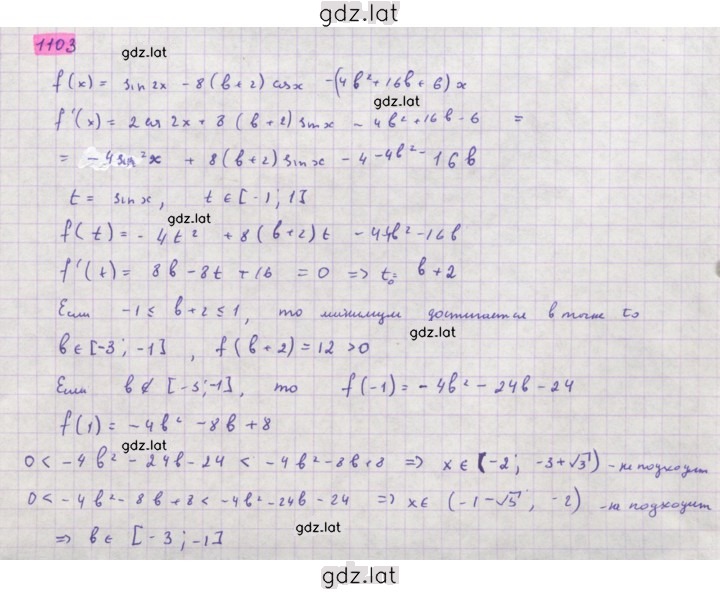 gdz.lat
1103
gdz.lat
f(x) = sin 2x - 8(b+2) cos x - (4b² + 16b + 6)x
gdz.lat
f'(x) = 2 cos 2x + 8(b+2) sin x - 4b² + 16b - 6 =
= - 4 sin² x + 8(b+2) sin x - 4 - 4b² - 16b
t = sin x, t ∈ [-1; 1]
gdz.lat
f(t) = - 4t² + 8(b+2)t - 4 - 4b² - 16b
f'(t) = 8b - 8t + 16 = 0 => t₀ = b+2
Если -1 ≤ b+2 ≤ 1, то минимум достигается в точке t₀
gdz.lat
b ∈ [-3; -1], f(b+2) = 12 > 0
Если b ∉ [-3; -1], то f(-1) = - 4b² - 24b - 24
f(1) = - 4b² - 8b + 8
gdz.lat
0 < - 4b² - 24b - 24 < - 4b² - 8b + 8 => x ∈ (-2; -3+√3) - не подходит
0 < - 4b² - 8b + 8 < - 4b² - 24b - 24 => x ∈ (-1-√5; -2) - не подходит
gdz.lat
=> b ∈ [-3; -1]
gdz.lat